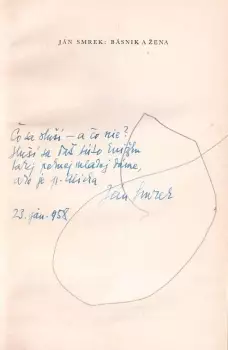 JÁN SMREK: BÁSNIK A ŽENA
Čo sa sluší – a čo nie?
Sluší sa dať túto knižku
peknej mladej dáme,
ako je p.
Ján Smrek
23. jan. 1958